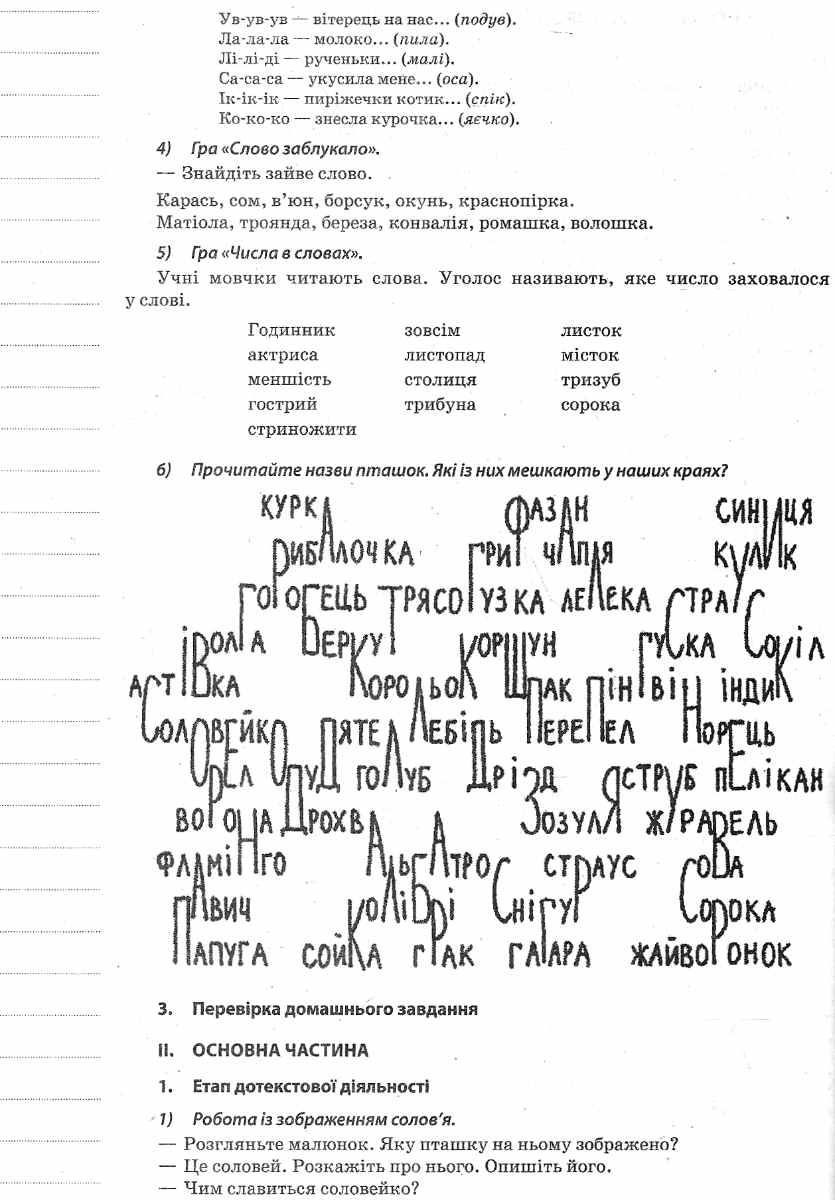 Ув-ув-ув — вітерець на нас... (подув).
Ла-ла-ла — молоко... (пила).
Лі-лі-ді — рученьки... (малі).
Са-са-са — укусила мене... (оса).
Ік-ік-ік — пиріжечки котик... (спік).
Ко-ко-ко — знесла курочка... (яєчко).
4) Гра «Слово заблукало».
— Знайдіть зайве слово.
Карась, сом, в’юн, борсук, окунь, краснопірка.
Матіола, троянда, береза, конвалія, ромашка, волошка.
5) Гра «Числа в словах».
Учні мовчки читають слова. Уголос називають, яке число заховалося
у слові.
Годинник зовсім листок
актриса листопад місток
меншість столиця тризуб
гострий трибуна сорока
стриножити
6) Прочитайте назви пташок. Які із них мешкають у наших краях?
КУРКА ФАЗАН СИНИЦЯ
РИБАЛОЧКА ГРИФ ЧАПЛЯ КУЛИК
ГОГОЛЕЦЬ ТРЯСОГУЗКА ЛЕЛЕКА СТРАУС
ІВОЛГА БЕРКУТ КОРШУН ГУСКА СОКІЛ
ЛАСТІВКА КОРОЛЬОК ШПАК ПІНГВІН ІНДИК
СОЛОВЕЙКО ДЯТЕЛ ЛЕБІДЬ ПЕРЕПЕЛ НОРЕЦЬ
ОРЕЛ ОДУД ГОЛУБ ДРІЗД ЯСТРУБ ПЕЛІКАН
ВОРОНА ДРОХВА ЗОЗУЛЯ ЖУРАВЕЛЬ
ФЛАМІНГО АЛЬБАТРОС СТРАУС СОВА
ПАВИЧ КОЛІБРІ СНІГУР СОРОКА
ПАПУГА СОЙКА ГРАК ГАГАРА ЖАЙВОРОНОК
3. Перевірка домашнього завдання
II. ОСНОВНА ЧАСТИНА
1. Етап дотекстової діяльності
1) Робота із зображенням солов’я.
— Розгляньте малюнок. Яку пташку на ньому зображено?
— Це соловей. Розкажіть про нього. Опишіть його.
— Чим славиться соловейко?